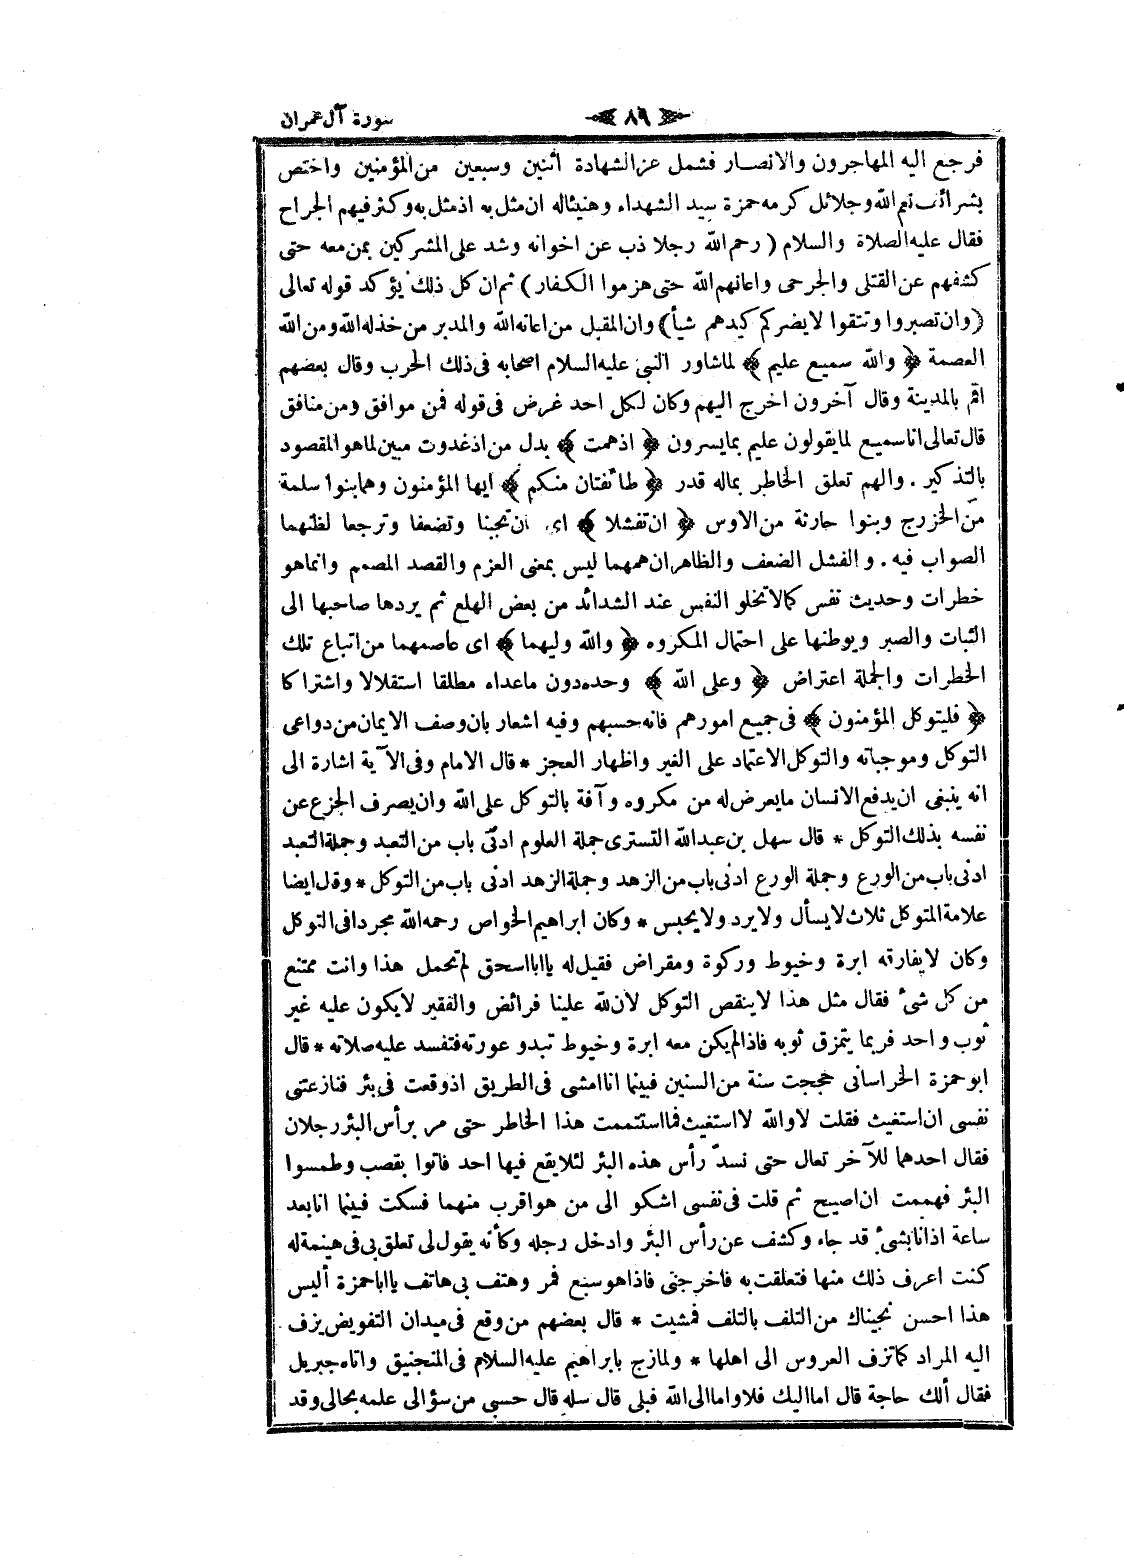 سورة آل عمران
٨٩
فرجع اليه المهاجرون والانصار فشمل عز الشهادة أثنين وسبعين من المؤمنين واختص
بشرائف نعم الله وجلائل كرمه حمزة سيد الشهداء وهنيئاله ان مثل به اذمثل به وكثر فيهم الجراح
فقال عليه الصلاة والسلام ( رحم الله رجلا ذب عن اخوانه وشد على المشركين بمن معه حتى
كشفهم عن القتلى والجرحى واعانهم الله حتى هزموا الكفار ) ثم ان كل ذلك يؤكد قوله تعالى
( وان تصبروا وتتقوا لايضركم كيدهم شيأ ) وان المقبل من اعانه الله والمدبر من خذله الله ومن الله
العصمة ﴿ والله سميع عليم ﴾ لماشاور النبى عليه السلام اصحابه فى ذلك الحرب وقال بعضهم
اقم بالمدينة وقال آخرون اخرج اليهم وكان لكل احد غرض فى قوله فمن موافق ومن منافق
قال تعالى اناسميع لمايقولون عليم بمايسرون ﴿ اذهمت ﴾ بدل من اذغدوت مبين لماهو المقصود
بالتذكير . والهم تعلق الخاطر بماله قدر ﴿ طائفتان منكم ﴾ ايها المؤمنون وهمابنوا سلمة
من الخزرج وبنوا حارثة من الاوس ﴿ ان تفشلا ﴾ اى ان تجبنا وتضعفا وترجعا لظنهما
الصواب فيه . والفشل الضعف والظاهر ان همهما ليس بمعنى العزم والقصد المصمم وانماهو
خطرات وحديث نفس كمالاتخلو النفس عند الشدائد من بعض الهلع ثم يردها صاحبها الى
الثبات والصبر ويوطنها على احتمال المكروه ﴿ والله وليهما ﴾ اى عاصمهما من اتباع تلك
الخطرات والجملة اعتراض ﴿ وعلى الله ﴾ وحده دون ماعداه مطلقا استقلالا واشتراكا
﴿ فليتوكل المؤمنون ﴾ فى جميع امورهم فانه حسبهم وفيه اشعار بان وصف الايمان من دواعى
التوكل وموجباته والتوكل الاعتماد على الغير واظهار العجز * قال الامام وفى الآية اشارة الى
انه ينبغى ان يدفع الانسان مايعرض له من مكروه وآفة بالتوكل على الله وان يصرف الجزع عن
نفسه بذلك التوكل * قال سهل بن عبدالله التسترى جملة العلوم ادنى باب من التعبد وجملة التعبد
ادنى باب من الورع وجملة الورع ادنى باب من الزهد وجملة الزهد ادنى باب من التوكل * وقال ايضا
علامة المتوكل ثلاث لايسأل ولايرد ولايحبس * وكان ابراهيم الخواص رحمه الله مجردا فى التوكل
وكان لايفارقه ابرة وخيوط وركوة ومقراض فقيل له يااباسحق لم تحمل هذا وانت ممتنع
من كل شئ فقال مثل هذا لاينقص التوكل لان لله علينا فرائض والفقير لايكون عليه غير
ثوب واحد فربما يتمزق ثوبه فاذالم يكن معه ابرة وخيوط تبدو عورته فتفسد عليه صلاته * قال
ابوحمزة الخراسانى حججت سنة من السنين فبينما اناامشى فى الطريق اذوقعت فى بئر فنازعتنى
نفسى ان استغيث فقلت لاوالله لااستغيث فمااستتممت هذا الخاطر حتى مر برأس البئر رجلان
فقال احدهما للآخر تعال حتى نسدّ رأس هذه البئر لئلايقع فيها احد فاتوا بقصب وطمسوا
البئر فهممت ان اصيح ثم قلت فى نفسى اشكو الى من هو اقرب منهما فسكت فبينما انابعد
ساعة اذانابشئ قد جاء وكشف عن رأس البئر وادخل رجله وكأنه يقول لى تعلق بى فى هينمة له
كنت اعرف ذلك منها فتعلقت به فاخرجنى فاذاهو سبع فمر وهتف بى هاتف يااباحمزة أليس
هذا احسن نجيناك من التلف بالتلف فمشيت * قال بعضهم من وقع فى ميدان التفويض يزف
اليه المراد كماتزف العروس الى اهلها * ولمازج بابراهيم عليه السلام فى المنجنيق واتاه جبريل
فقال ألك حاجة قال امااليك فلا واماالى الله فبلى قال سله قال حسبى من سؤالى علمه بحالى وقد